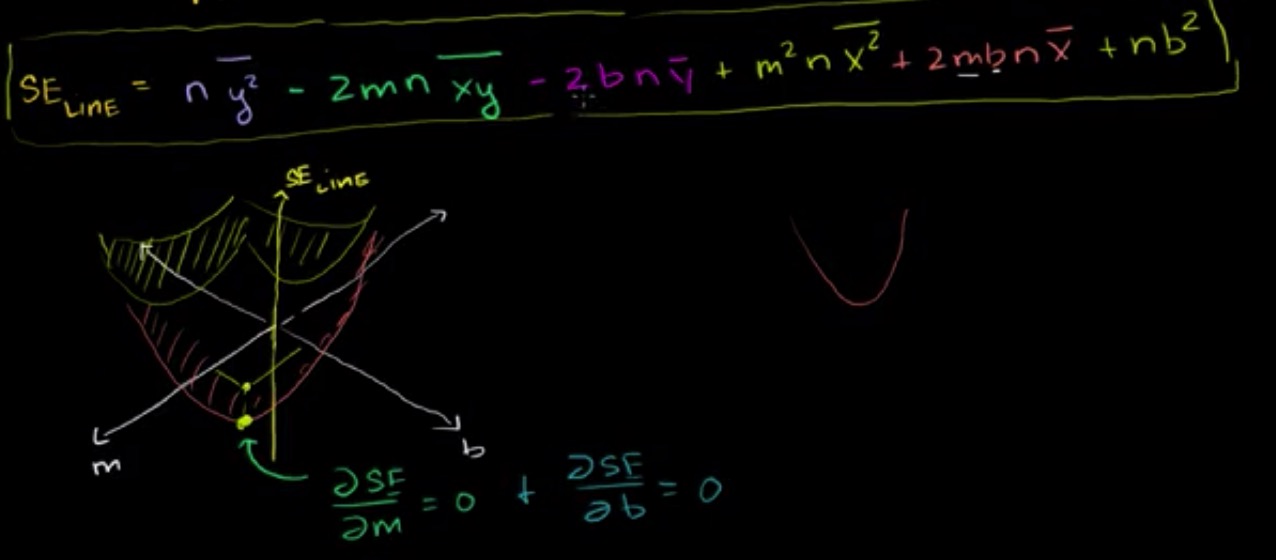 SE_LINE = n \overline{y^2} - 2mn \overline{xy} - 2bn \overline{y} + m^2 n \overline{x^2} + 2mbn \overline{x} + nb^2
SE_LINE
m
b
∂SE/∂m = 0 + ∂SE/∂b = 0